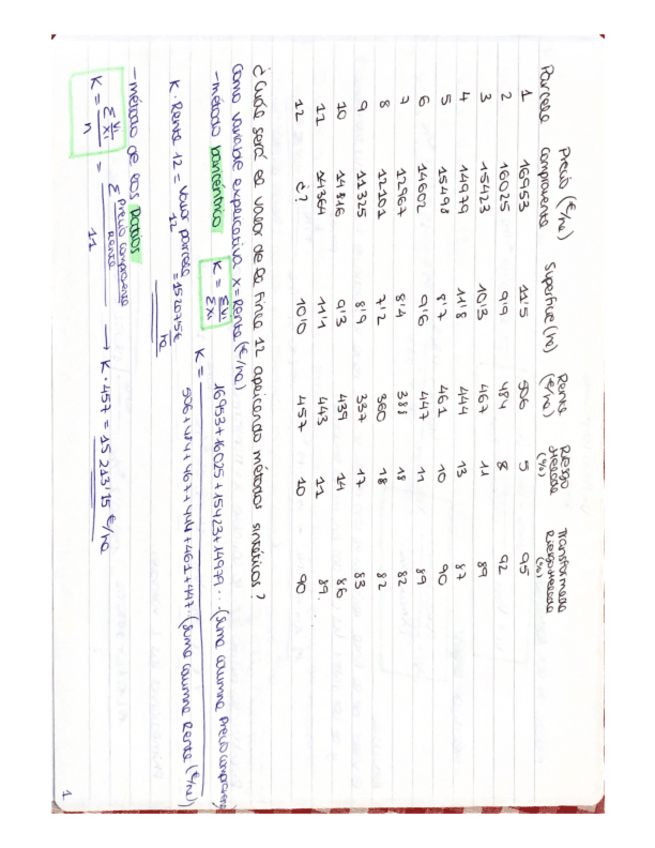 Parcela Precio (€/ha) comparavente Superficie (ha) Renta (€/ha) Riesgo Helada (%) Transformada Riesgo Helada (%)
1 16953 11'5 506 5 95
2 16025 9'9 484 8 92
3 15423 10'3 467 11 89
4 14979 11'8 444 13 87
5 15498 8'7 461 10 90
6 14602 9'6 447 11 89
7 12967 8'4 388 18 82
8 12101 7'2 360 18 82
9 11325 8'9 337 17 83
10 14816 9'3 439 14 86
11 14364 11'1 443 11 89.
12 ¿? 10'0 457 10 90
¿Cuál será el valor de la finca 12 aplicando métodos sintéticos?
Como variable explicativa x = Renta (€/ha)
-método baricéntrico K = Σvi / Σxi K = 16953 + 16025 + 15423 + 14979 ... (suma columna Precio comparavente) / 506 + 484 + 467 + 444 + 461 + 447 ·· (suma columna Renta (€/ha))
K · Renta 12 = Valor parcela 12 = 15207'5 €/ha
-método de los Ratios
K = Σ vi/xi / n = Σ Precio comparavente/Renta / 11 → K · 457 = 15 213'15 €/ha
1